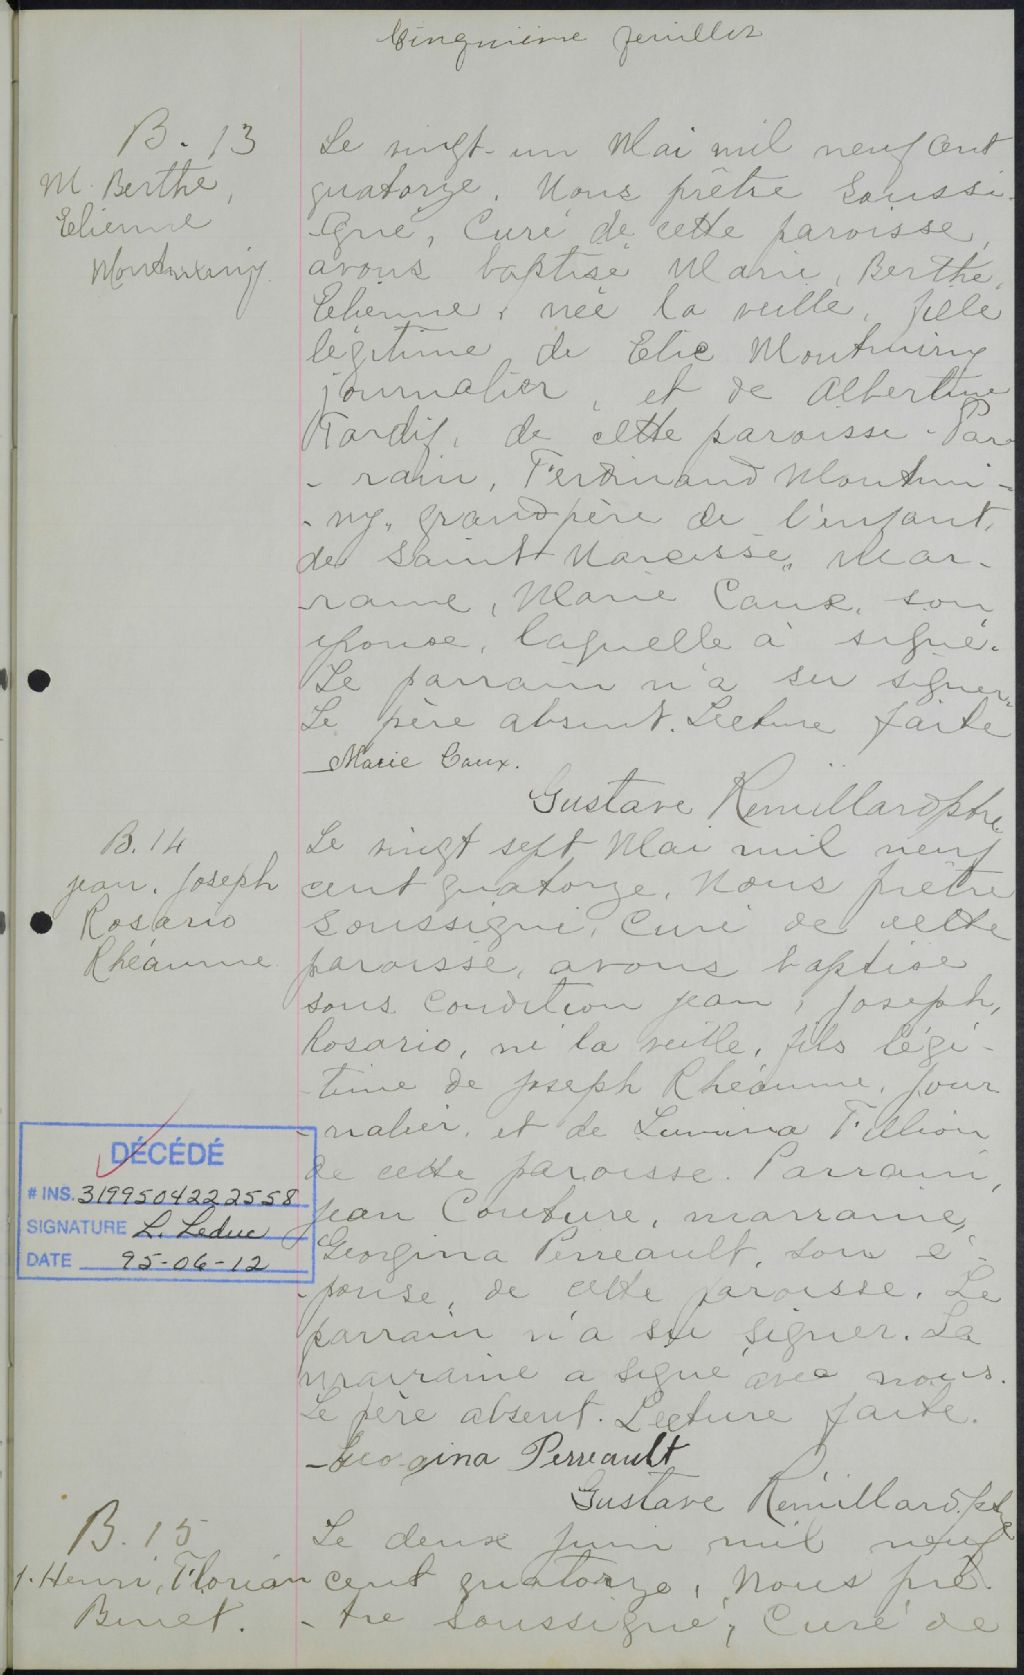 Cinquième feuillet
B. 13
M. Berthe,
Etienne
Montminy
Le vingt-un Mai mil neuf cent
quatorze, Nous prêtre soussi-
-gné, Curé de cette paroisse,
avons baptisé Marie, Berthe,
Etienne, née la veille, fille
légitime de Elie Montminy
journalier, et de Albertine
Tardif, de cette paroisse. Par-
-rain, Ferdinand Montmi-
-ny, grandpère de l'enfant,
de Saint Narcisse, Mar-
-raine, Marie Caux, son
épouse, laquelle à signé.
Le parrain n'a su signer,
Le père absent. Lecture faite
Marie Caux.
Gustave Rémillard ptre
B. 14
jean. Joseph
Rosario
Rhéaume
Le vingt sept Mai mil neuf
cent quatorze, Nous prêtre
soussigné, Curé de cette
paroisse, avons baptisé
sous condition jean, Joseph,
Rosario, né la veille, fils légi-
-time de Joseph Rhéaume, jour
-nalier, et de Lumina Fillion
de cette paroisse. Parrain,
Jean Couture, marraine,
Georgina Perreault, son é-
-pouse, de cette paroisse. Le
parrain n'a su signer. La
marraine a signé avec nous.
Le père absent. Lecture faite.
Georgina Perreault
Gustave Rémillard, ptre
DÉCÉDÉ
# INS. 3199504222558
SIGNATURE L. Leduc
DATE 95-06-12
B. 15
J. Henri, Florian
Binet.
Le deux juin mil neuf
cent quatorze, Nous prê-
-tre soussigné, Curé de